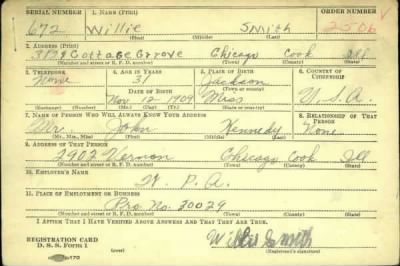 SERIAL NUMBER 1. NAME (Print) ORDER NUMBER
672 Willie Smith 2506
(First) (Middle) (Last)
2. ADDRESS (Print)
3129 Cottage Grove Chicago Cook Ill
(Number and street or R. F. D. number) (Town) (County) (State)
3. TELEPHONE 4. AGE IN YEARS 5. PLACE OF BIRTH 6. COUNTRY OF CITIZENSHIP
None 31 Jackson
DATE OF BIRTH (Town or county)
Nov 12-1909 Miss U.S.A.
(Exchange) (Number) (Mo.) (Day) (Yr.) (State or country)
7. NAME OF PERSON WHO WILL ALWAYS KNOW YOUR ADDRESS 8. RELATIONSHIP OF THAT PERSON
Mr. John Kennedy None
(Mr., Mrs., Miss) (First) (Middle) (Last)
9. ADDRESS OF THAT PERSON
2902 Vernon Chicago Cook Ill
(Number and street or R. F. D. number) (Town) (County) (State)
10. EMPLOYER'S NAME
W. P. A.
11. PLACE OF EMPLOYMENT OR BUSINESS
Pro No. 30029
(Number and street or R. F. D. number) (Town) (County) (State)
I AFFIRM THAT I HAVE VERIFIED ABOVE ANSWERS AND THAT THEY ARE TRUE.
REGISTRATION CARD Willie Smith
D. S. S. Form 1 (Registrant's signature)